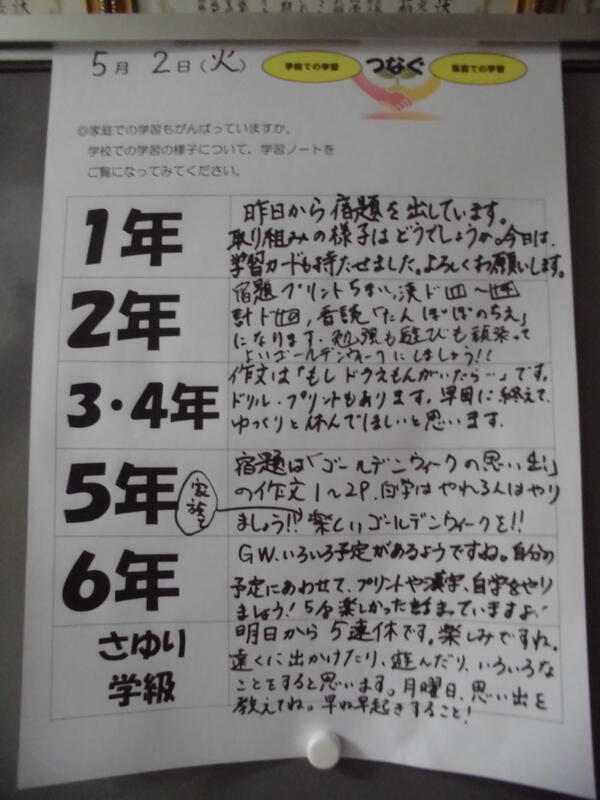 5月 2日(火)
学校での学習 つなぐ 家庭での学習
◎家庭での学習もがんばっていますか。
学校での学習の様子について、学習ノートを
ご覧になってみてください。
1年
昨日から宿題を出しています。
取り組みの様子はどうでしょうか。今日は、
学習カードも持たせました。よろしくお願いします。
2年
宿題プリント5まい、漢ド
計ド、音読「たんぽぽのちえ」
になります。勉強も遊びも頑張って
よいゴールデンウィークにしましょう!!
3・4年
作文は「もしドラえもんがいたら…」です。
ドリル・プリントもあります。早目に終えて、
ゆっくりと休んでほしいと思います。
5年
家族と
宿題は「ゴールデンウィークの思い出」
の作文1〜2P、自学はやれる人はやり
ましょう!!楽しいゴールデンウィークを!!
6年
GW、いろいろ予定があるようですね。自分の
予定にあわせて、プリントや漢字、自学をやり
ましょう!楽しかった話まっていますよ!
さゆり
学級
明日から5連休です。楽しみですね。
遠くに出かけたり、遊んだり、いろいろな
ことをすると思います。月曜日、思い出を
教えてね。早ね早起きすること!